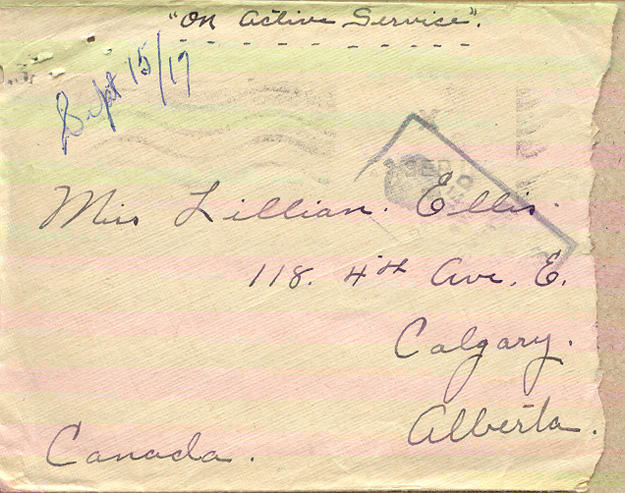 "On Active Service".
Sept 15/17
Miss Lillian. Ellis.
118. 4th Ave. E.
Calgary.
Alberta.
Canada.